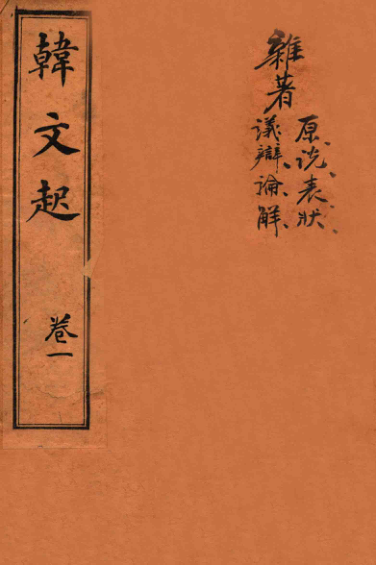 雜著
原、说、表、狀、
議、辯、論、解、
韓文起
卷一